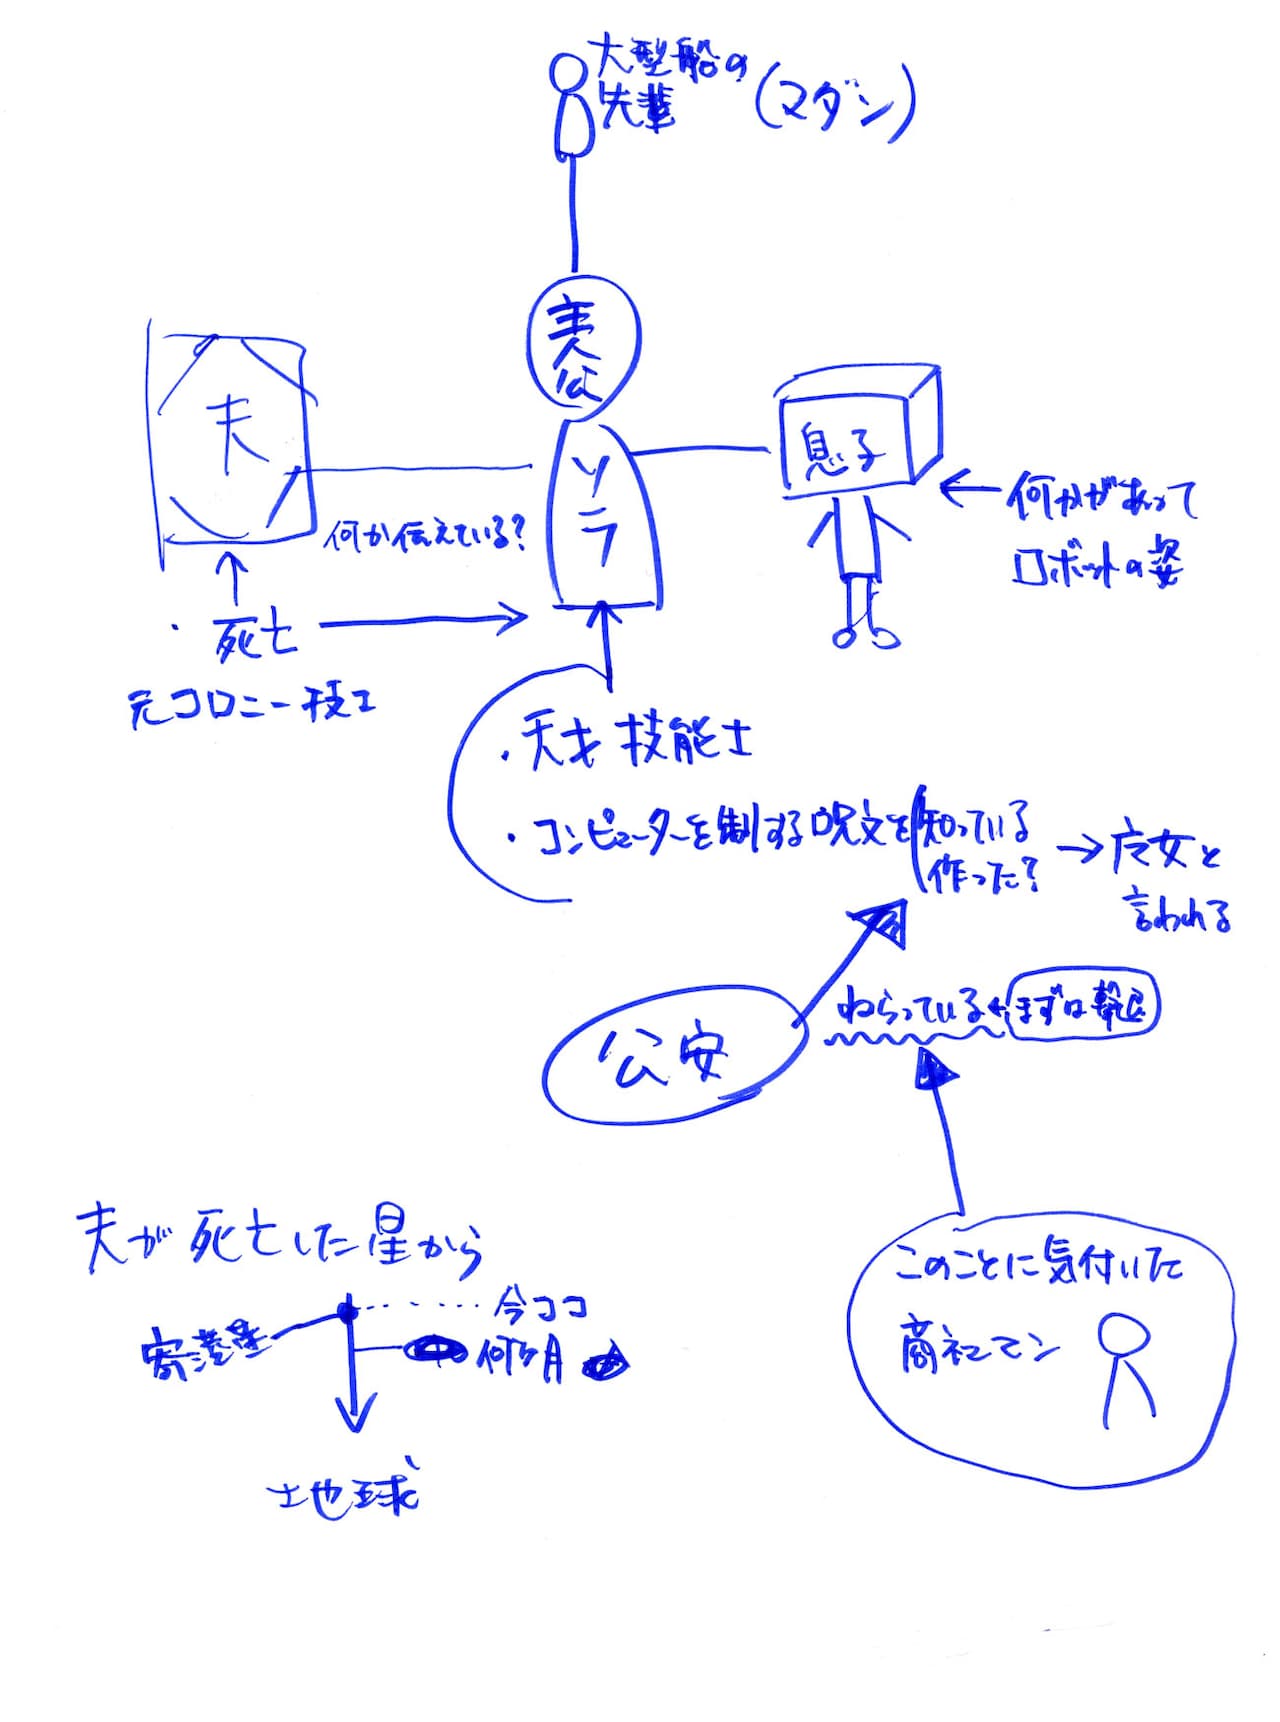 大型船の
先輩
(マダン)
主人公
ソラ
夫
息子
何か伝えている?
何かがあって
ロボットの姿
・死亡
元コロニー技工
・天才技能士
・コンピューターを制する呪文を
知っている
作った?
言われる
公安
ねらっている
まずは
このことに気付いた
商社マン
夫が死亡した星から
今ココ
寄港星
何ヶ月
地球